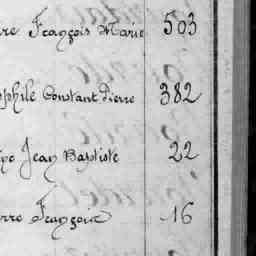 re François Marie 503
ophile Constant Pierre 382
Jean Baptiste 22
rre François 16